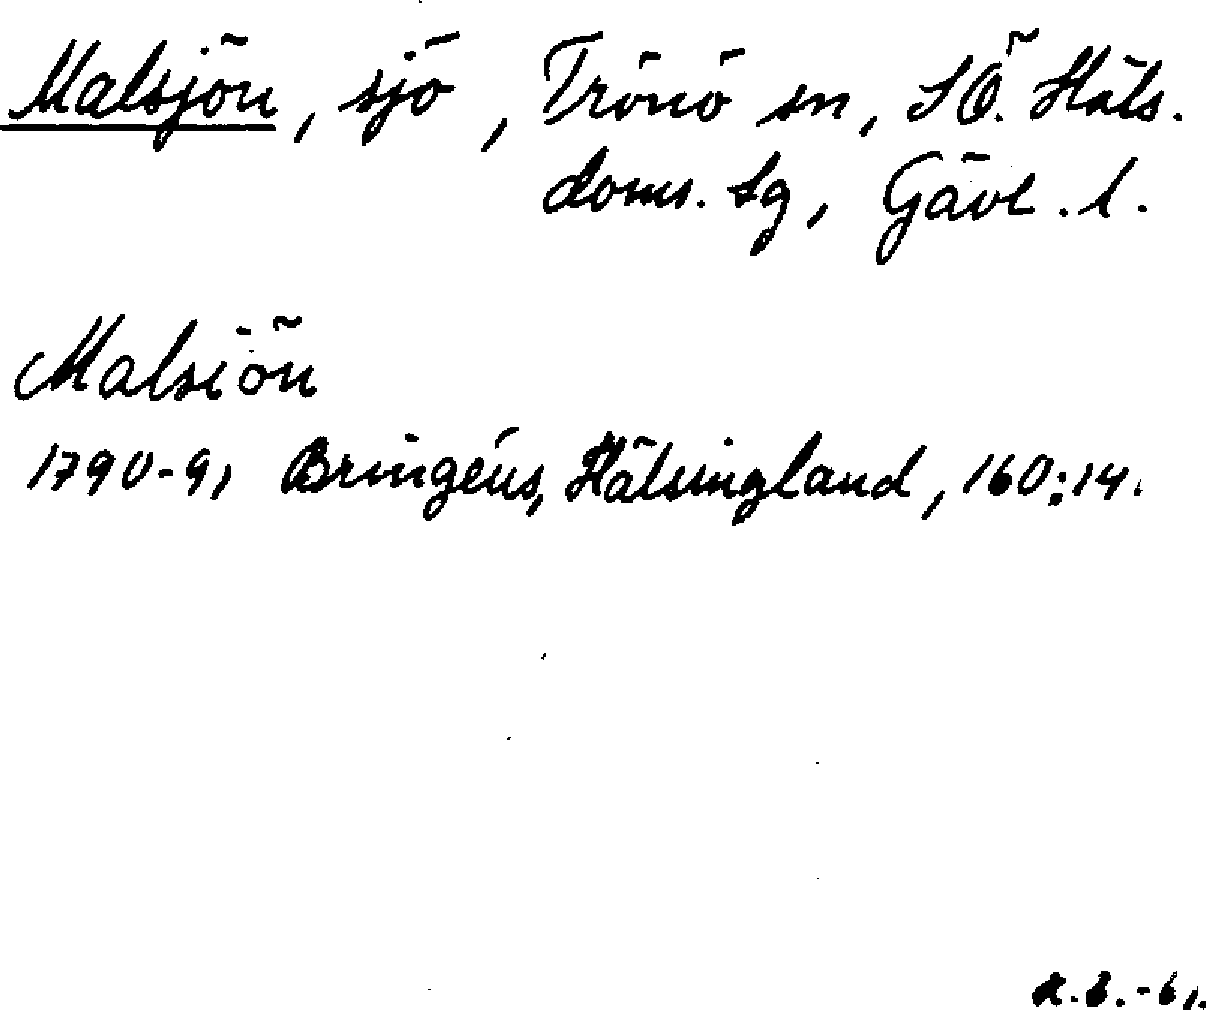 Malsjön, sjö, Trönö sn, SÖ. Häls.
doms. sg, Gävl. l.
Malsiön
1790-91 Bringéus, Hälsingland, 160:14.
-61.